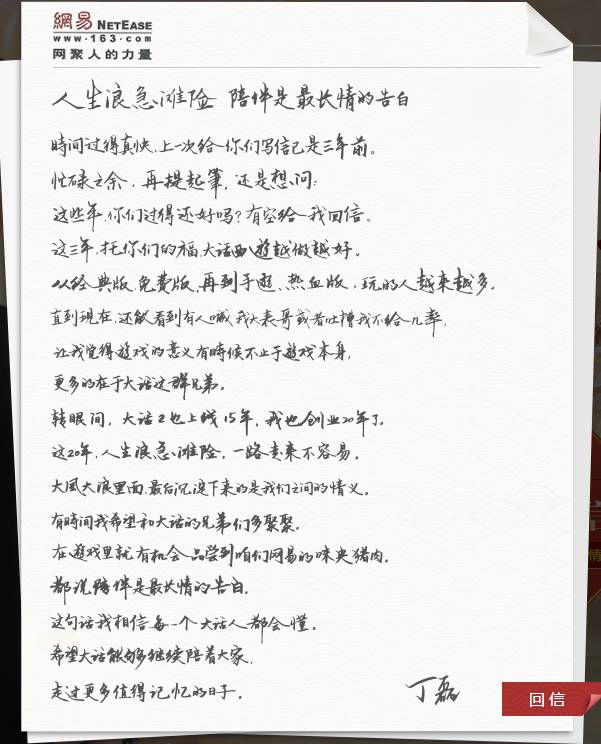 網易 NETEASE
www.163.com
网聚人的力量
人生浪急滩险 陪伴是最长情的告白
時间过得真快,上一次给你们写信已是三年前。
忙碌之余,再提起筆,还是想问:
这些年,你们过得还好吗?有空给我回信。
这三年,托你们的福,大话西遊越做越好。
从经典版,免费版,再到手遊、热血版,玩的人越来越多。
直到现在,还能看到有人喊我大表哥或者吐槽我不给几率,
让我觉得遊戏的意义有時候不止于遊戏本身,
更多的在于大话这群兄弟。
转眼间,大话2也上线15年,我也创业20年了。
这20年,人生浪急滩险,一路走来不容易。
大風大浪里面,最后沉淀下来的是我们之间的情义。
有時间我希望和大话的兄弟们多聚聚。
在遊戏里就有机会品尝到咱们网易的味央猪肉。
都说陪伴是最长情的告白,
这句话我相信每一个大话人都会懂。
希望大话能够继续陪着大家,
走过更多值得记忆的日子。
丁磊
回信